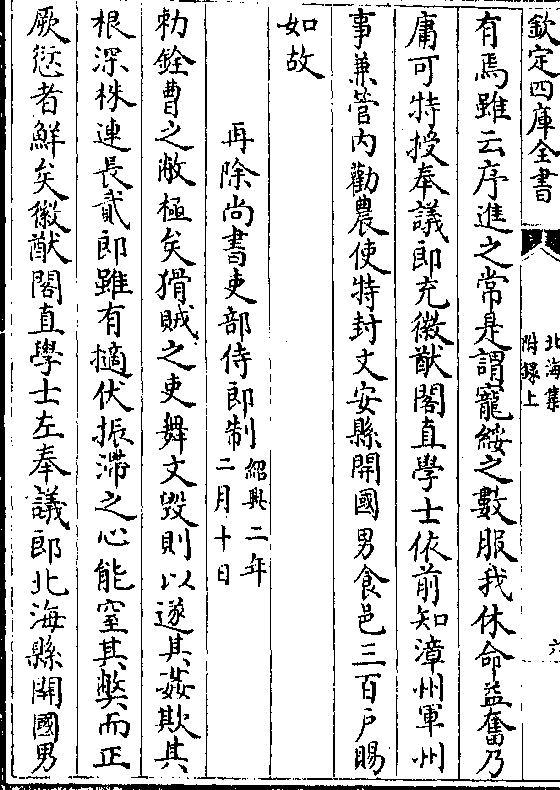 欽定四庫全書
北海集
附録上
六
有焉雖云序進之常是謂寵綏之數服我休命益奮乃
庸可特授奉議郎充徽猷閣直學士依前知漳州軍州
事兼管内勸農使特封文安縣開國男食邑三百户賜
如故
再除尚書吏部侍郎制紹興二年二月十日
勑銓曹之敝極矣猾賊之吏舞文毀則以遂其姦欺其
根深株連長貳郎雖有擿伏振滯之心能窒其弊而正
厥愆者鮮矣徽猷閣直學士左奉議郎北海縣開國男